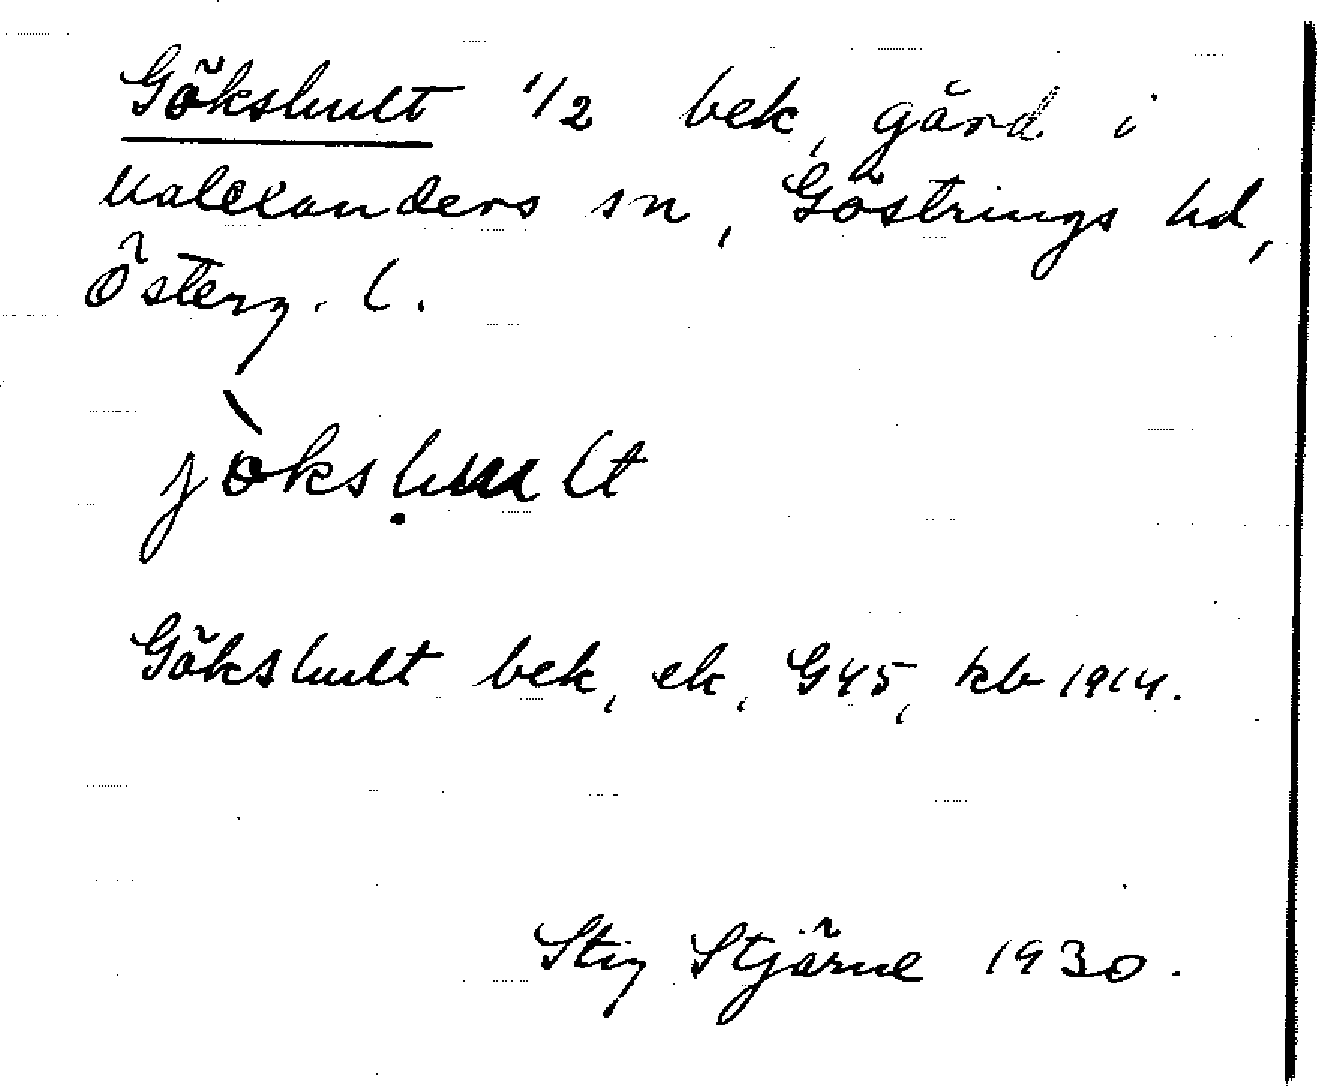 Gökshult 1/2 bek, gård i
Malexanders sn, Göstrings hd,
Österg. l.
jökshult
Gökshult bek, ek, G45, kb 1914.
Stig Stjärne 1930.